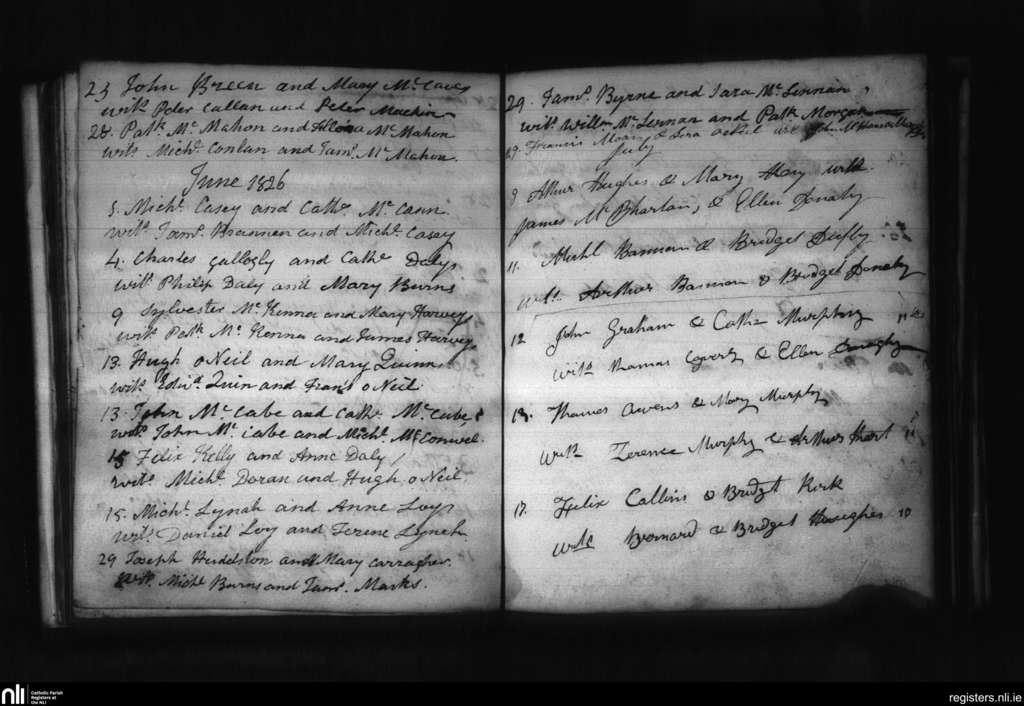 23 John Breen and Mary McCave
witn Peter Callan and Peter Mackin
28. Patk McMahon and McMahon
wits Michl Conlan and Jams McMahon
June 1826
Michl Casey and Cathe McCann
wits Jams Brannen and Michl Casey
4. Charles Gallogly and Cathe Daly
wits Philip Daly and Mary Burns
9 Sylvester McKenna and Mary Harvey
wits Patk McKenna and James Harvey
13. Hugh oNeil and Mary Quinn
wits Edwd Quin and Frans oNeil
13. John McCabe and Cathe McCabe
wits John McCabe and Michl McConwel
15 Felix Kelly and Anne Daly
wits Michl Doran and Hugh oNeil
15. Michl Lynah and Anne Loy
wits Daniel Loy and Terene Lynch
29 Joseph Huddston and Mary Carragher
wits Michl Burns and Jams Marks.
29. Jams Byrne and Sara McLinnan
wits Willm McLennan and Patk Morgan
19. Francis Moan & wits John
July
9 Arthur Hughes & Mary Hoey witn
James McPharlan, & Ellen Donaty
11. Michl Bannon & Bridget Duffy
witn Arthur Bannon & Bridget Donaty
12 John Graham & Cathe Murphy
witn Thomas & Ellen
13. Thomas Owens & Mary Murphy
witn Terence Murphy & Arthur Hart
17. Felix Callins & Bridgt Kirk
witn Bernard & Bridget Haughes 10
nli
Catholic Parish
Registers at
the NLI
registers.nli.ie